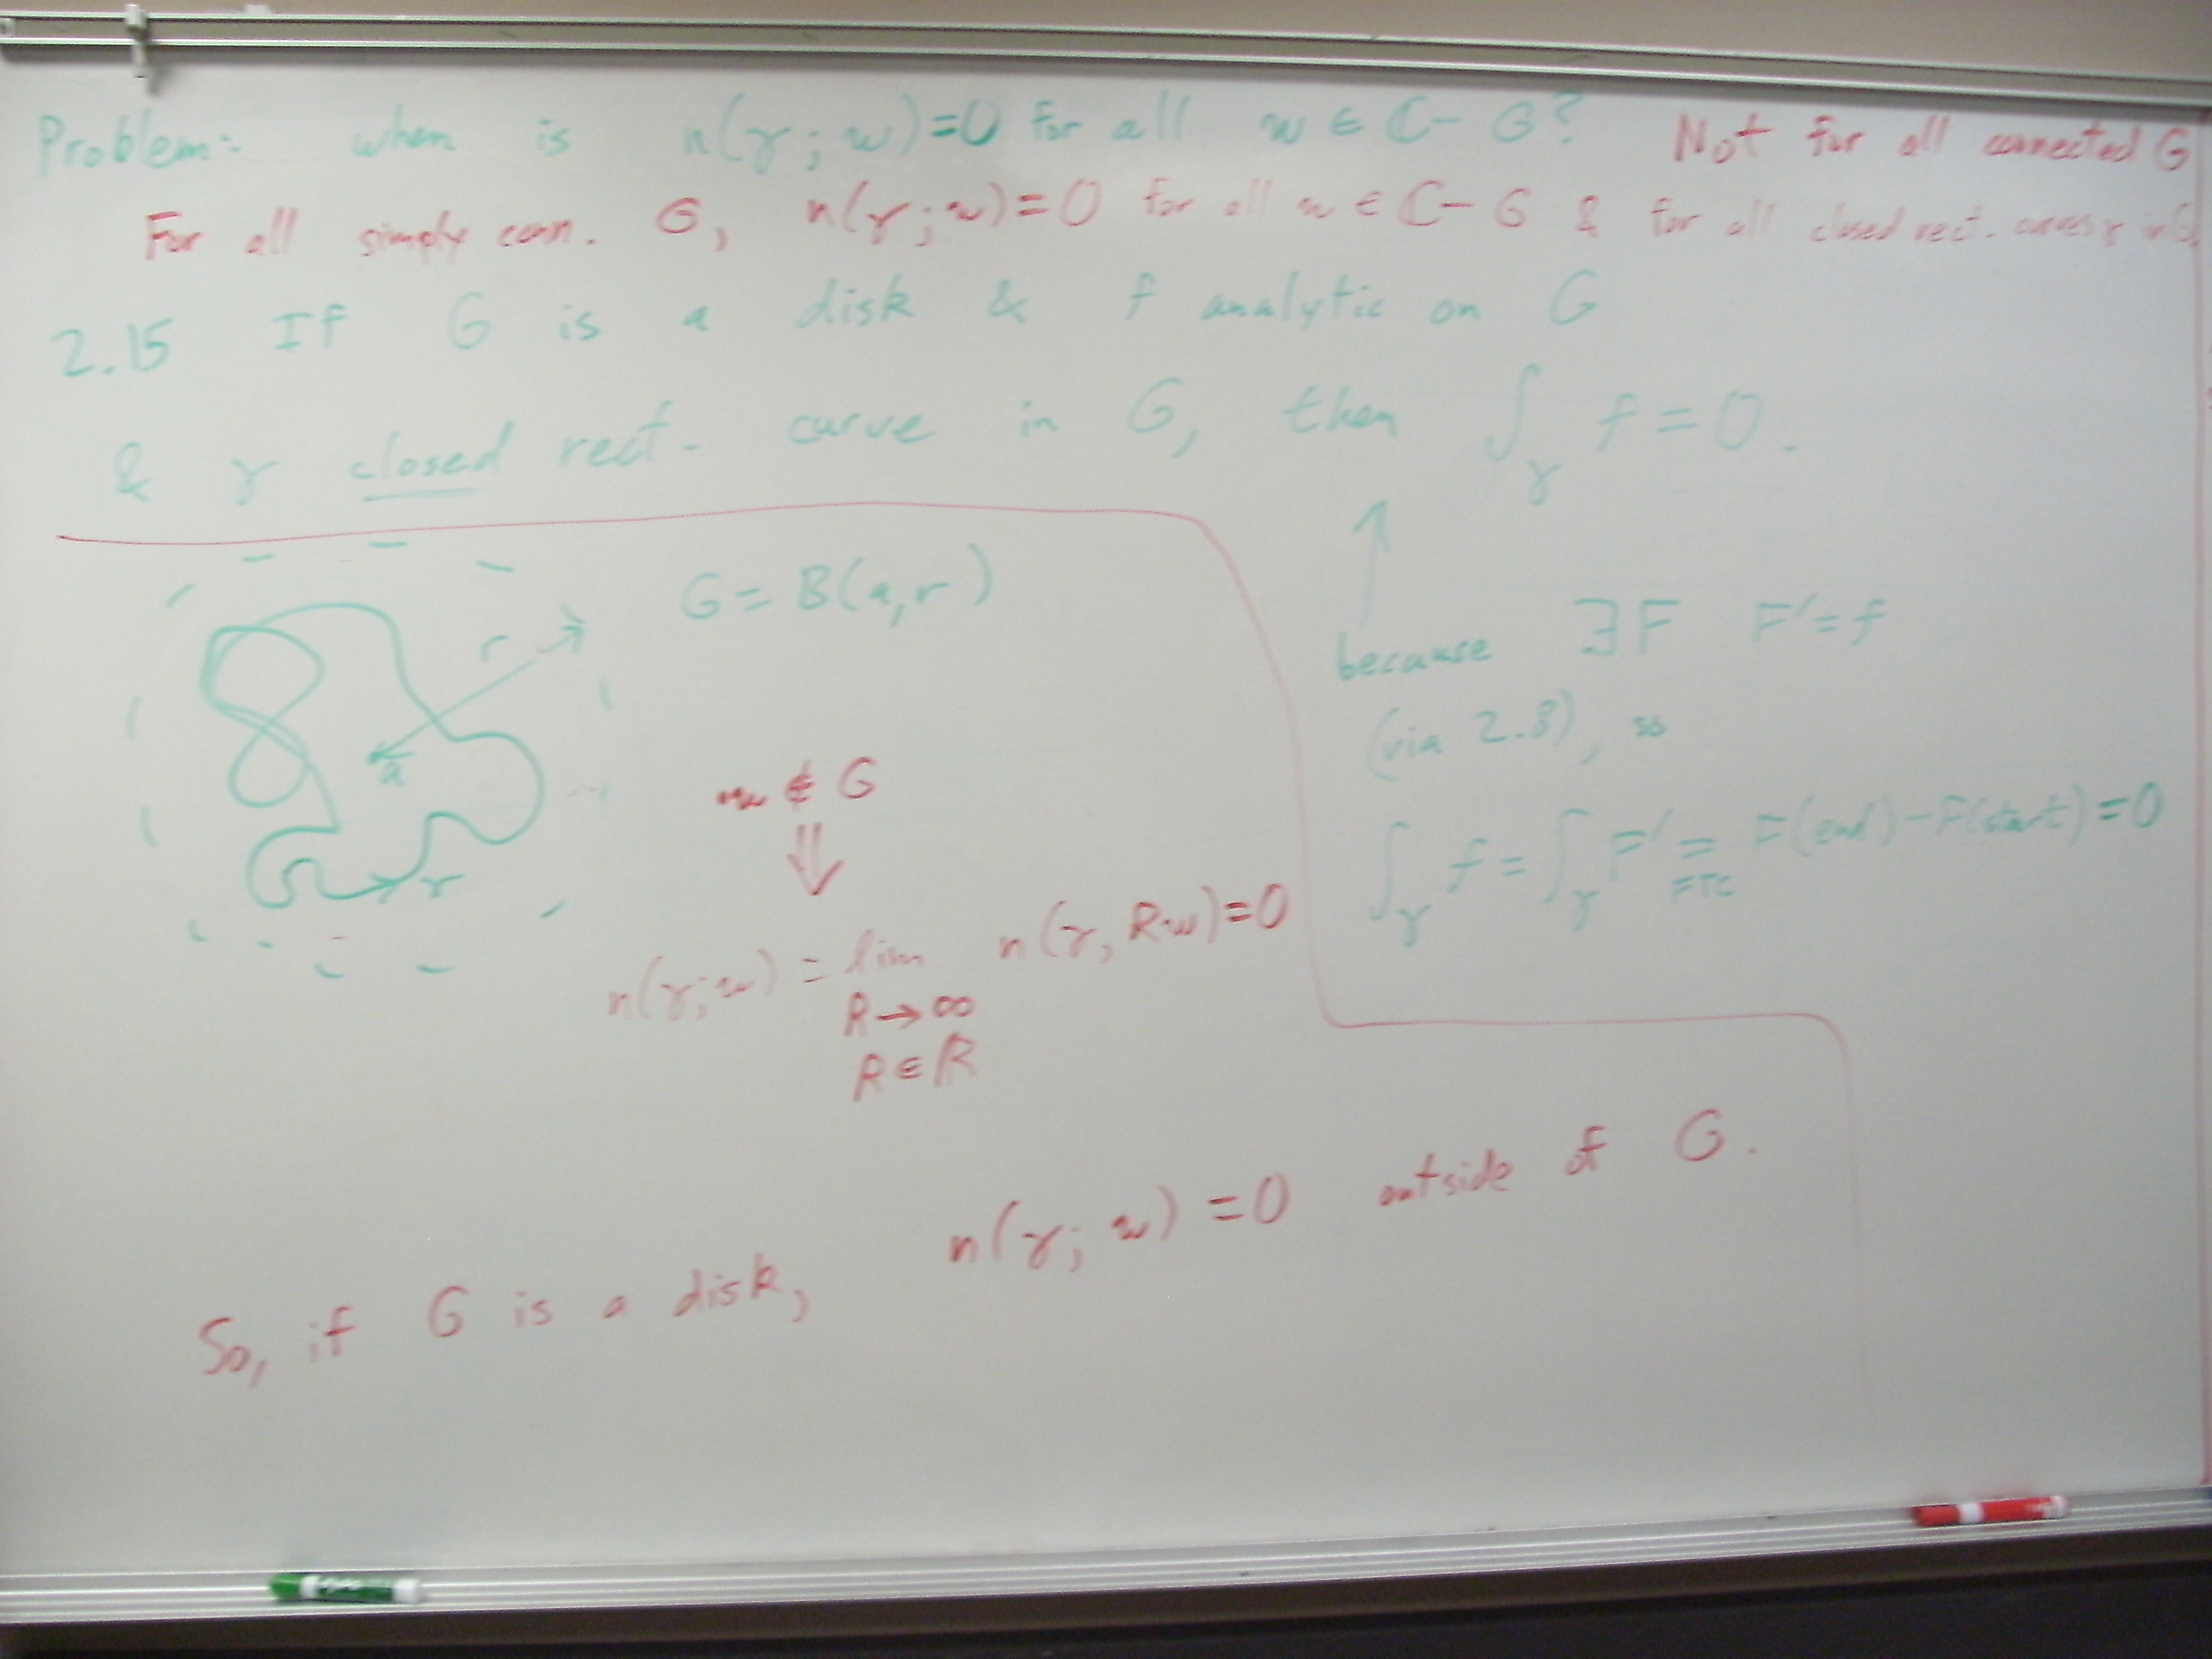 Problem: when is n(γ; w)=0 for all w ∈ ℂ- G? Not for all connected G
For all simply conn. G, n(γ; w)=0 for all w ∈ ℂ- G & for all closed rect. curves γ in G
2.15 If G is a disk & f analytic on G
& γ closed rect. curve in G, then ∫_γ f = 0.
G = B(a,r)
r
a
γ
w ∉ G
⇓
n(γ;w) = lim n(γ, R·w)=0
R→∞
R∈ℝ
↑
because ∃F F'=f
(via 2.8), so
∫_γ f = ∫_γ F' = F(end)-F(start)=0
FTC
So, if G is a disk, n(γ; w) =0 outside of G.